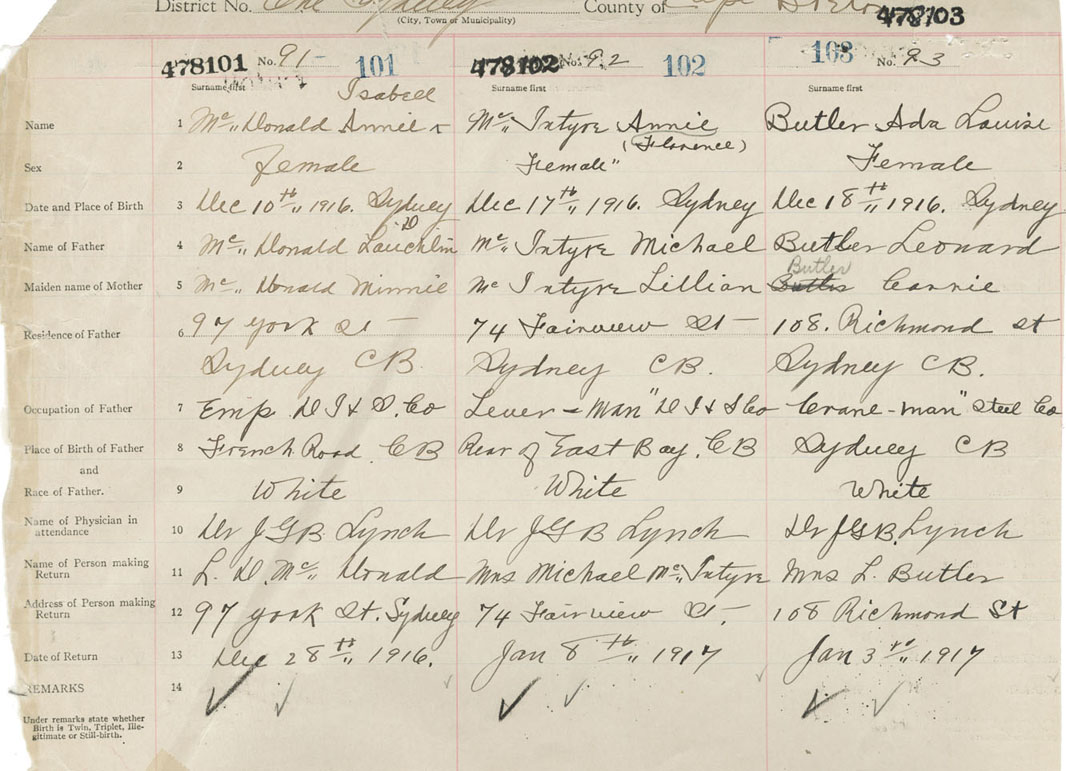 District No. One Sydney County of Cape Breton
(City, Town or Municipality)
478103
478101 No. 91 - 101 478102 No. 92 102 103 No. 93
Surname first Surname first Surname first
Isabell
Name 1 Mc„ Donald Annie Mc„ Intyre Annie Butler Ada Louise
(Florence)
Sex 2 Female Female" Female
Date and Place of Birth 3 Dec 10th„ 1916. Sydney Dec 17th„ 1916. Sydney Dec 18th„ 1916. Sydney
D
Name of Father 4 Mc„ Donald Lauchlin Mc„ Intyre Michael Butler Leonard
Butler
Maiden name of Mother 5 Mc„ Donald Minnie Mc Intyre Lillian Butler Carrie
Residence of Father 6 97 york St - 74 Fairview St - 108. Richmond st
Sydney CB. Sydney CB. Sydney CB.
Occupation of Father 7 Emp D I & S. Co Lever - man" D I & S Co Crane - man" Steel Co
Place of Birth of Father 8 French Road. CB Rear of East Bay. CB Sydney CB
and
Race of Father. 9 White White White
Name of Physician in
attendance 10 Dr J G B Lynch Dr J G B Lynch Dr J G B. Lynch
Name of Person making
Return 11 L. D. Mc„ Donald Mrs Michael Mc„ Intyre Mrs L. Butler
Address of Person making
Return 12 97 york St. Sydney 74 Fairview St -. 108 Richmond St
Date of Return 13 Dec 28th„ 1916. Jan 8th„ 1917 Jan 3rd„ 1917
REMARKS 14
Under remarks state whether
Birth is Twin, Triplet, Ille-
gitimate or Still-birth.